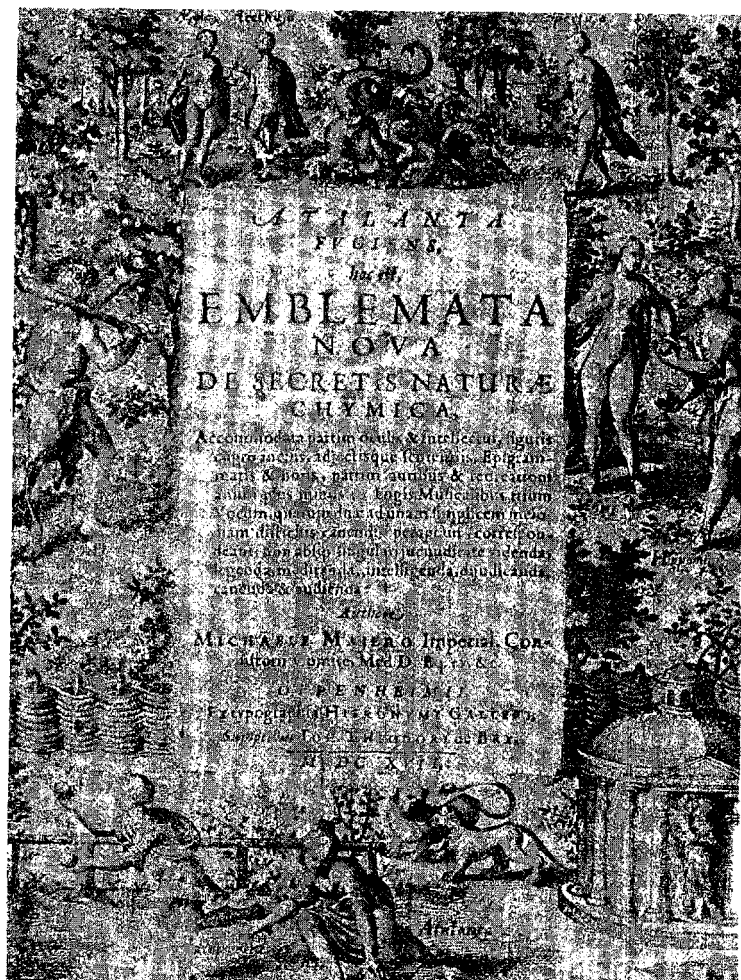 Arethusa
ATALANTA
FVGIENS,
hoc est,
EMBLEMATA
NOVA
DE SECRETIS NATURÆ
CHYMICA,
Accommodata partim oculis & intellectui, figuris
cupro incisis, adjectisque sententiis, Epigram-
matis & notis, partim auribus & recreationi
animi plus minus Fugis Musicalibus trium
Vocum, quarum duæ ad unam simplicem melo-
diam distichis canendis peraptam, correspon-
deant, non absq; singulari jucunditate videnda,
legenda, meditanda, intelligenda, dijudicanda,
canenda & audienda
Authore
MICHAELE MAJERO Imperial. Con-
sistorii Comite, Med. D. Eq. ex. &c.
OPPENHEIMII
Ex typographia HIERONYMI GALLERI,
Sumptibus JOH. THEODORI de BRY,
MDCXVII.
Atalanta